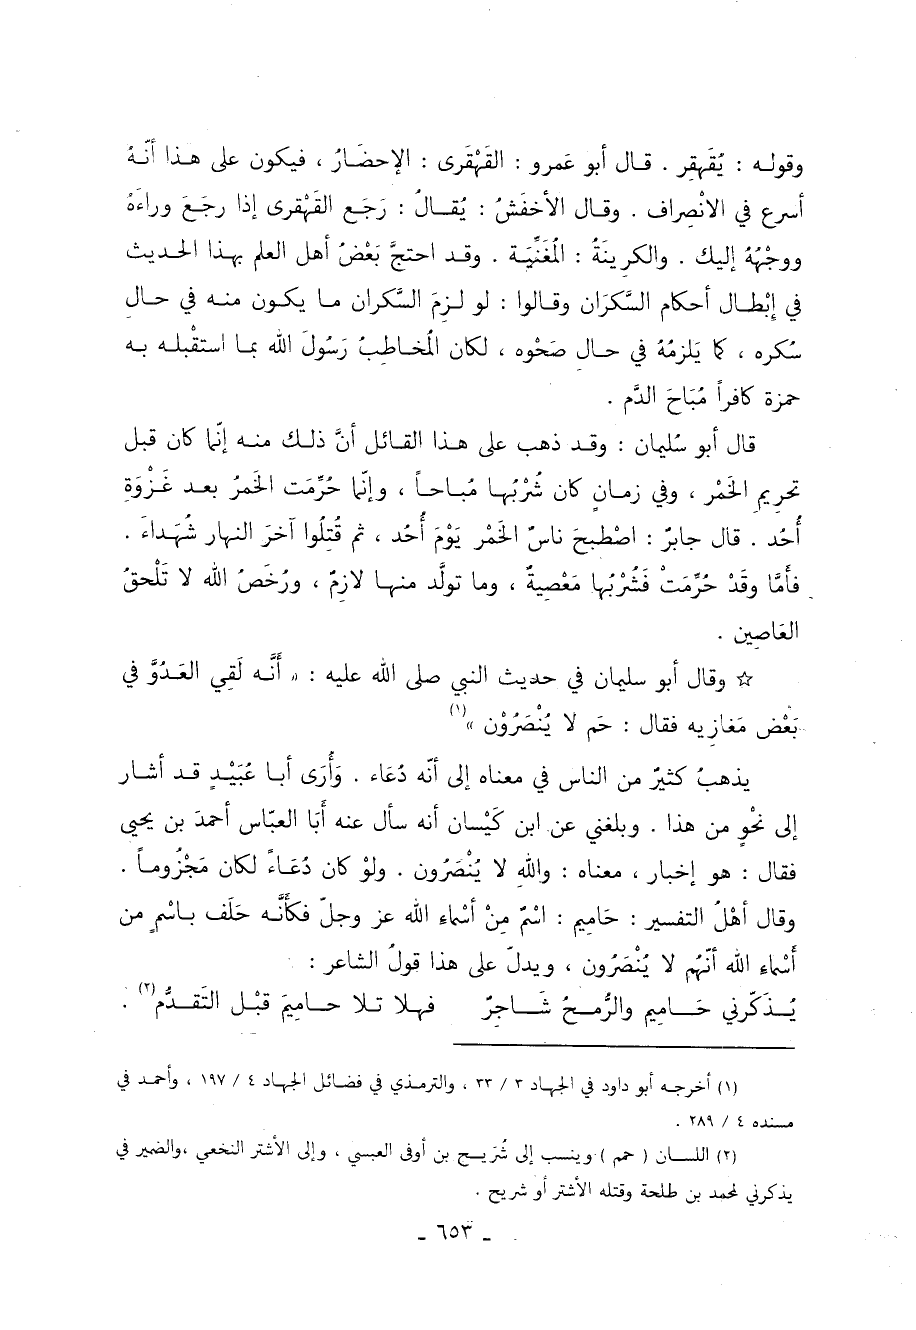 وقوله : يُقَهقِر . قال أبو عَمرو : القَهْقَرى : الإحضَارُ ، فيكون على هذا أنّهُ
أسرع في الانْصِراف . وقال الأخفَشُ : يُقالُ : رَجَع القَهْقرى إذا رجَعَ وراءَهُ
ووجْهُهُ إليك . والكرينَةُ : المُغَنِّيَة . وقد احتجَّ بَعْضُ أهل العلم بهذا الحديث
في إبْطال أحكام السَّكرَان وقالوا : لو لزمَ السَّكران ما يكون منه في حال
سُكره ، كما يَلزمُهُ في حال صَحْوه ، لكان المُخاطِبُ رَسُولَ الله بما استقْبله به
حمزة كافراً مُبَاحَ الدَّم .
قال أبو سُليمان : وقد ذهب على هذا القائل أنَّ ذلك منه إنّما كان قبل
تحريم الخَمْر ، وفي زمانٍ كان شُرْبُها مُباحاً ، وإنّما حُرِّمَت الخمرُ بعد غَزْوَةِ
أُحُد . قال جابرٌ : اصْطبحَ ناسٌ الخَمْر يَوْمَ أُحُد ، ثم قُتِلُوا آخرَ النهار شُهَداءَ .
فأَمَّا وقَدْ حُرِّمَتْ فَشُرْبُها مَعْصِيةٌ ، وما تولَّد منها لازمٌ ، ورُخَصُ الله لا تَلْحقُ
العَاصِين .
☆ وقال أبو سليمان في حديث النبي صلى الله عليه : « أَنَّه لَقِي العَدُوَّ في
بَعْض مَغازيه فقال : حَم لا يُنْصَرُوْن »(١)
يذهبُ كثيرٌ من الناس في معناه إلى أنّه دُعَاء . وَأُرَى أبا عُبَيْدٍ قد أشار
إلى نحْوٍ من هذا . وبلغني عن ابن كَيْسان أنه سأل عنه أَبَا العبّاس أحمدَ بن يحيى
فقال : هو إخبار ، معناه : واللهِ لا يُنْصَرُون . ولوْ كان دُعَاءً لكان مَجْزُوماً .
وقال أهْلُ التفسير : حَاميم : اسْمٌ مِنْ أسْماء الله عز وجلّ فكأَنَّه حَلَف باسْمٍ من
أَسْماء الله أنّهُم لا يُنْصَرُون ، ويدلّ على هذا قولُ الشاعر :
يُذَكّرني حَاميم والرُّمحُ شَاجِرٌ فهلا تلا حاميمَ قبْل التَقدُّم(٢) .
(١) أخرجه أبو داود في الجهاد ٣ / ٣٣ ، والترمذي في فضائل الجهاد ٤ / ١٩٧ ، وأحمد في
مسنده ٤ / ٢٨٩ .
(٢) اللسان ( حمم ) وينسب إلى شُرَيح بن أوفى العبسي ، وإلى الأشتر النخعي ،والضمير في
يذكرني لمحمد بن طلحة وقتله الأشتر أو شريح .
- ٦٥٣ -